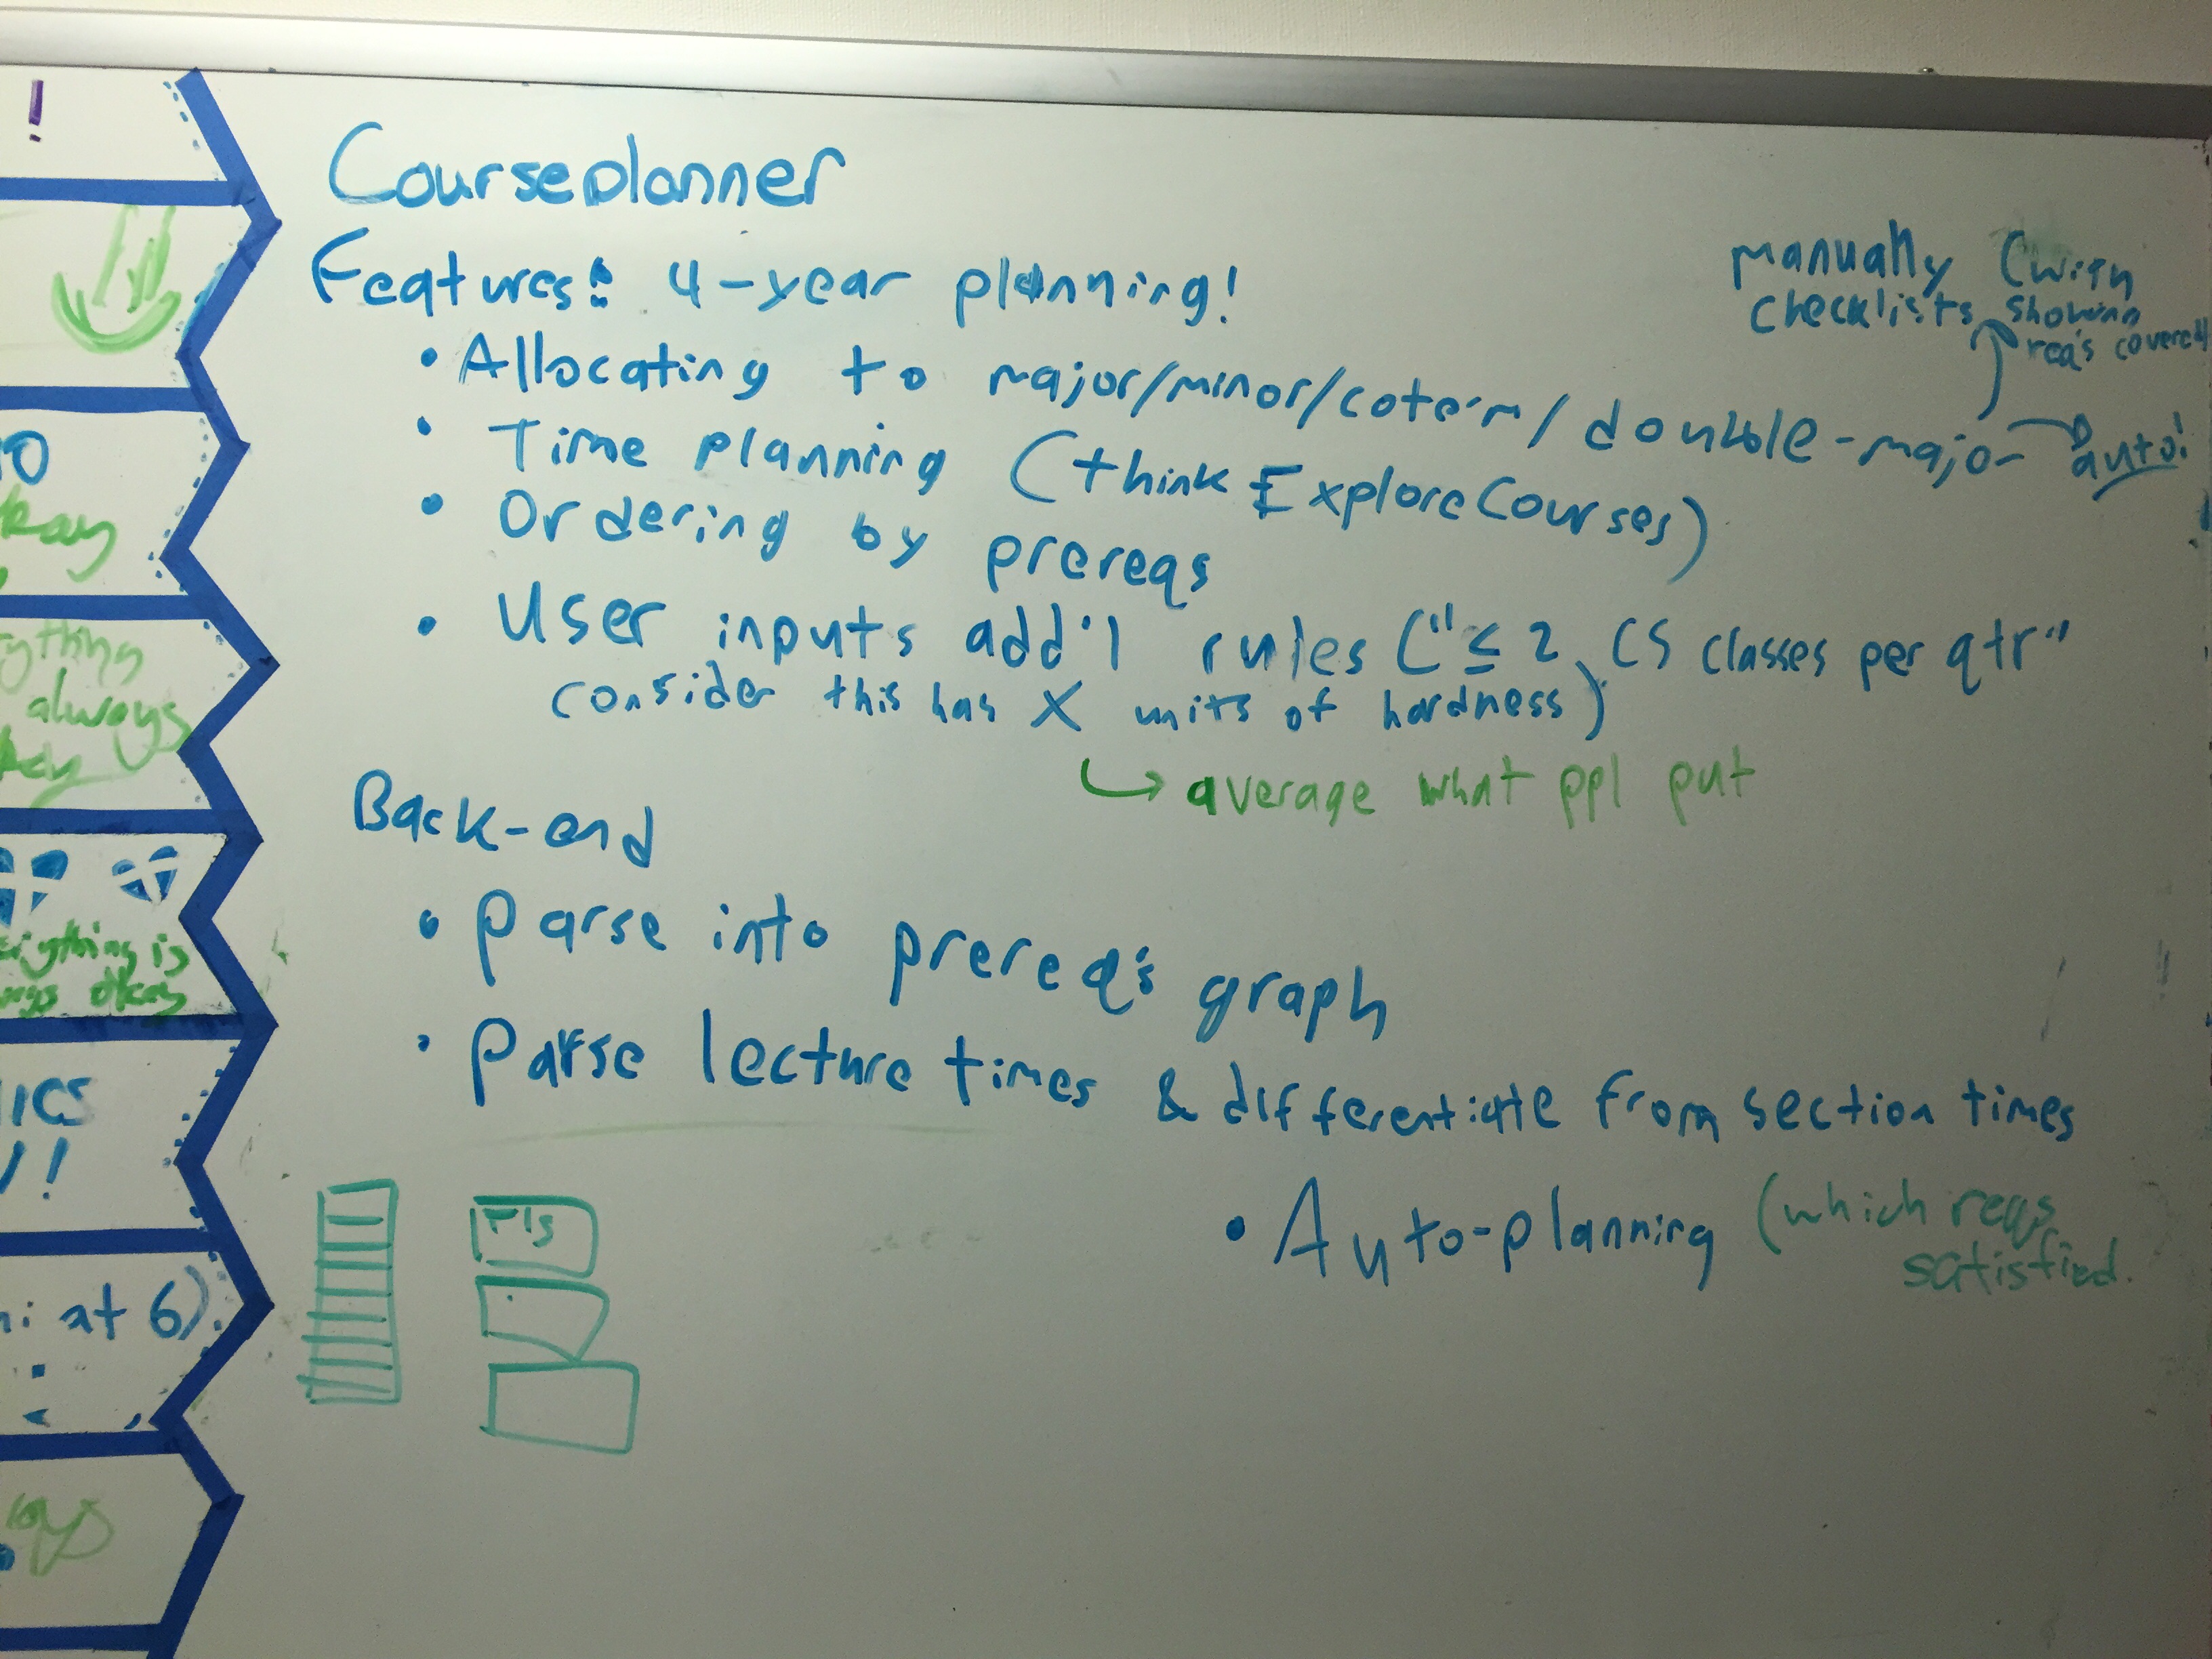 !
Courseplanner
Features: 4-year planning!
manually (with
checklists showing
req's covered
• Allocating to major/minor/coterm/double-major
auto!
• Time planning (think ExploreCourses)
• Ordering by prereqs
• User inputs add'l rules ("≤ 2 CS classes per qtr"
consider this has X units of hardness)
↳ average what ppl put
Back-end
• Parse into prereq's graph
• Parse lecture times & differentiate from section times
• Auto-planning (which reqs
satisfied.
always
is
okay
ICS
!
at 6)